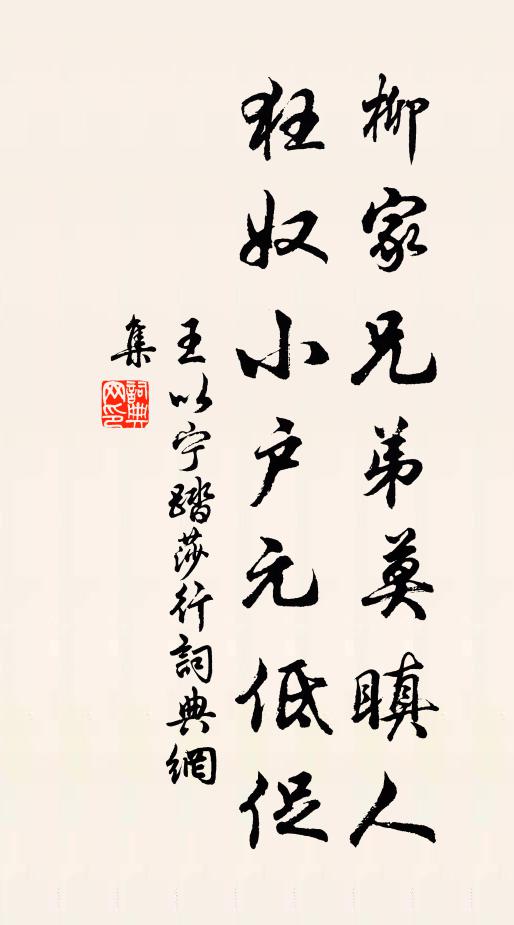 柳家兄弟莫瞋人
狂奴小户元低促
王以宁踏莎行詞典網
集
詞典网印